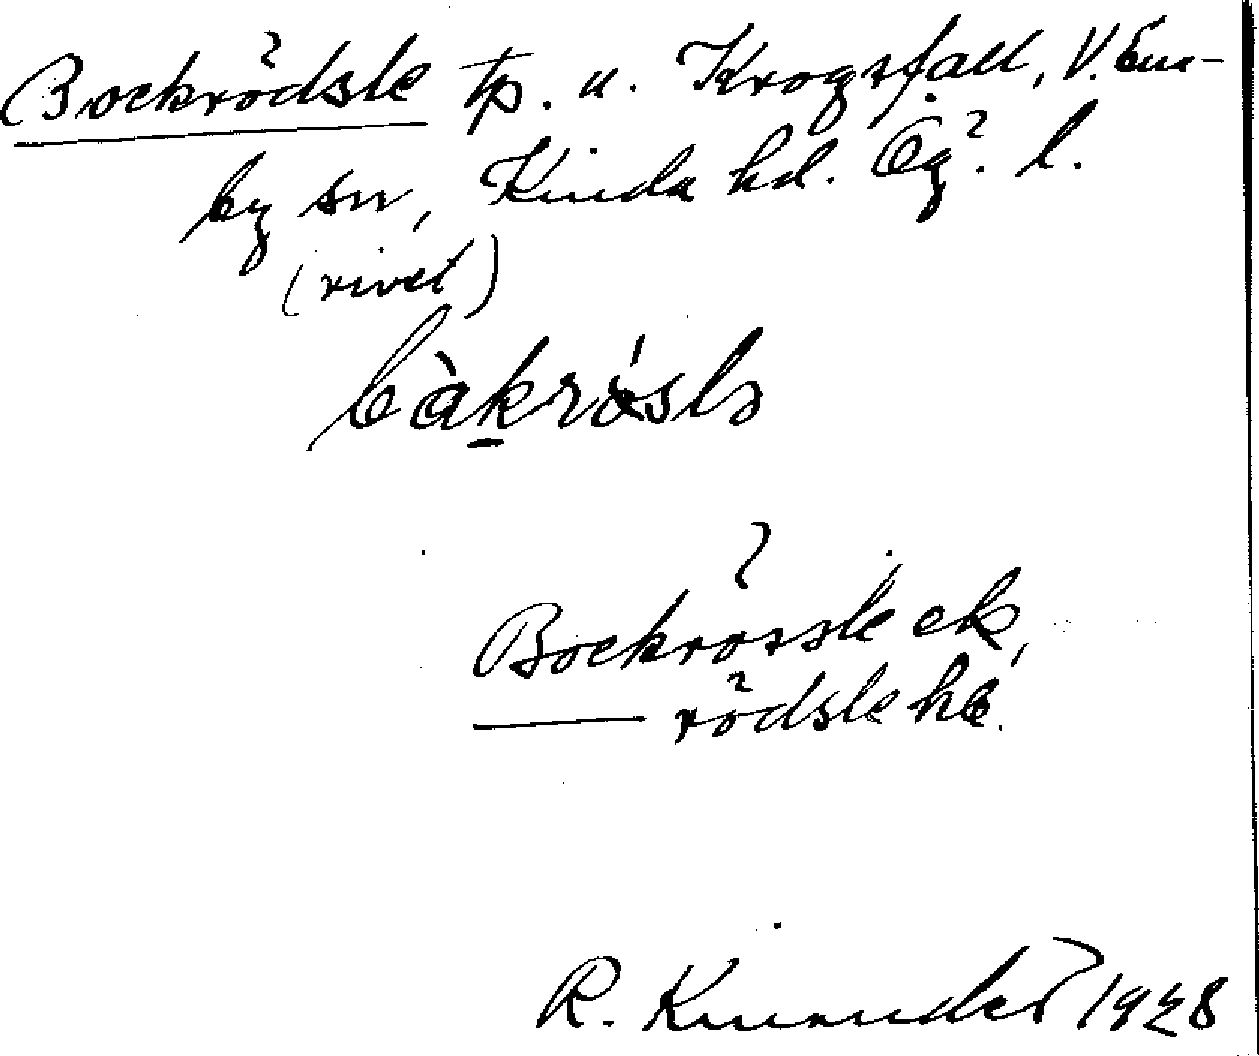 Bockrödsle tp. u. Krogsfall, V. En-
by sn, Kinda hd. Ög. l.
(rivet)
bàkrósls
Bockrössle ek,
—— rödsle hc.
R. Kinander 1928